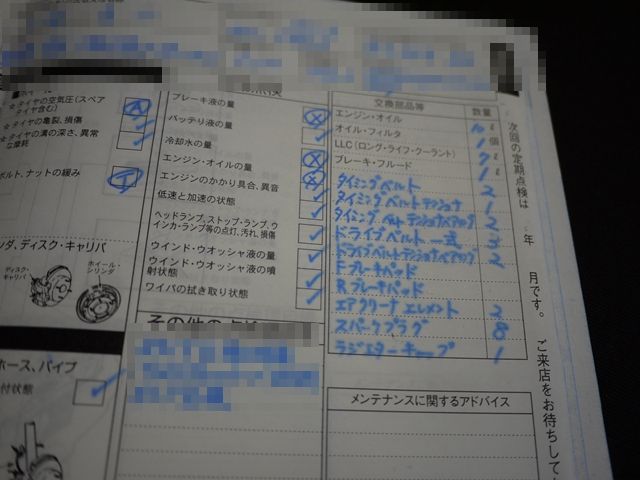 ☆タイヤの空気圧(スペアタイヤ含む)
☆タイヤの亀裂、損傷
☆タイヤの溝の深さ、異常な摩耗
ボルト、ナットの緩み
ンダ、ディスク・キャリパ
ディスク・キャリパ
ホイール・シリンダ
ホース、パイプ
付状態
ブレーキ液の量
バッテリ液の量
冷却水の量
エンジン・オイルの量
エンジンのかかり具合、異音
低速と加速の状態
ヘッドランプ、ストップ・ランプ、ウインカ・ランプ等の点灯、汚れ、損傷
ウインド・ウオッシャ液の量
ウインド・ウオッシャ液の噴射状態
ワイパの拭き取り状態
交換部品等 数量
エンジン・オイル 10 ℓ
オイル・フィルタ 1 個
LLC(ロング・ライフ・クーラント) 9 ℓ
ブレーキ・フルード 1 ℓ
タイミングベルト 2
タイミングベルトテンショナ 1
タイミングベルトテンショナベアリング 2
ドライブベルト一式 3
ドライブベルトテンショナベアリング 2
Fブレーキパッド
Rブレーキパッド
エアクリーナエレメント 2
スパークプラグ 8
ラジエターキャップ 1
メンテナンスに関するアドバイス
次回の定期点検は 年 月です。 ご来店をお待ちして